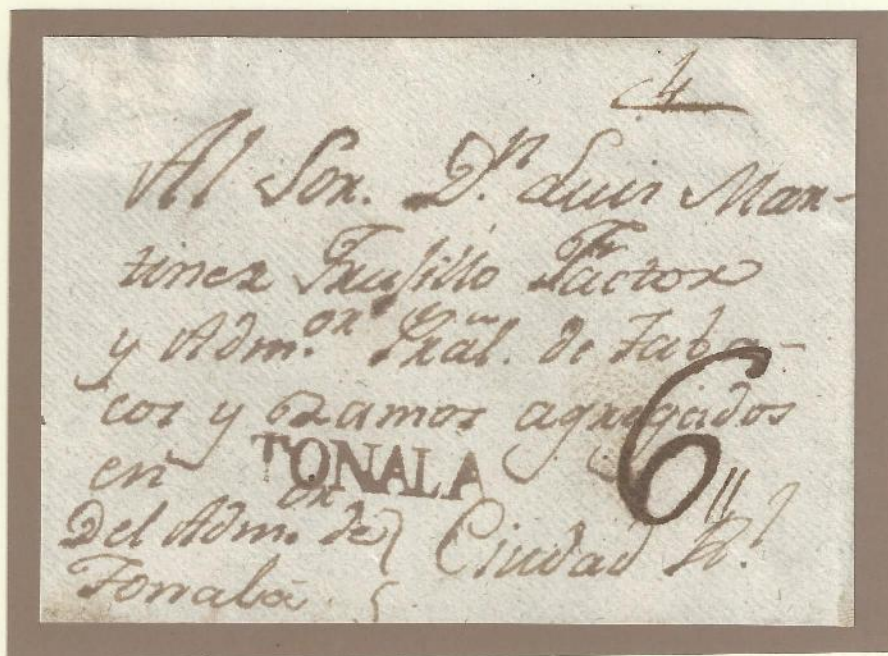 4
Al Sor. Dn. Luis Mar-
tinez Truxillo Factor
y Admor. Gral. de Taba-
cos y Ramos agregados
en
TONALA
6
Del Admor. de
Ciudad Rl.
Tonalá